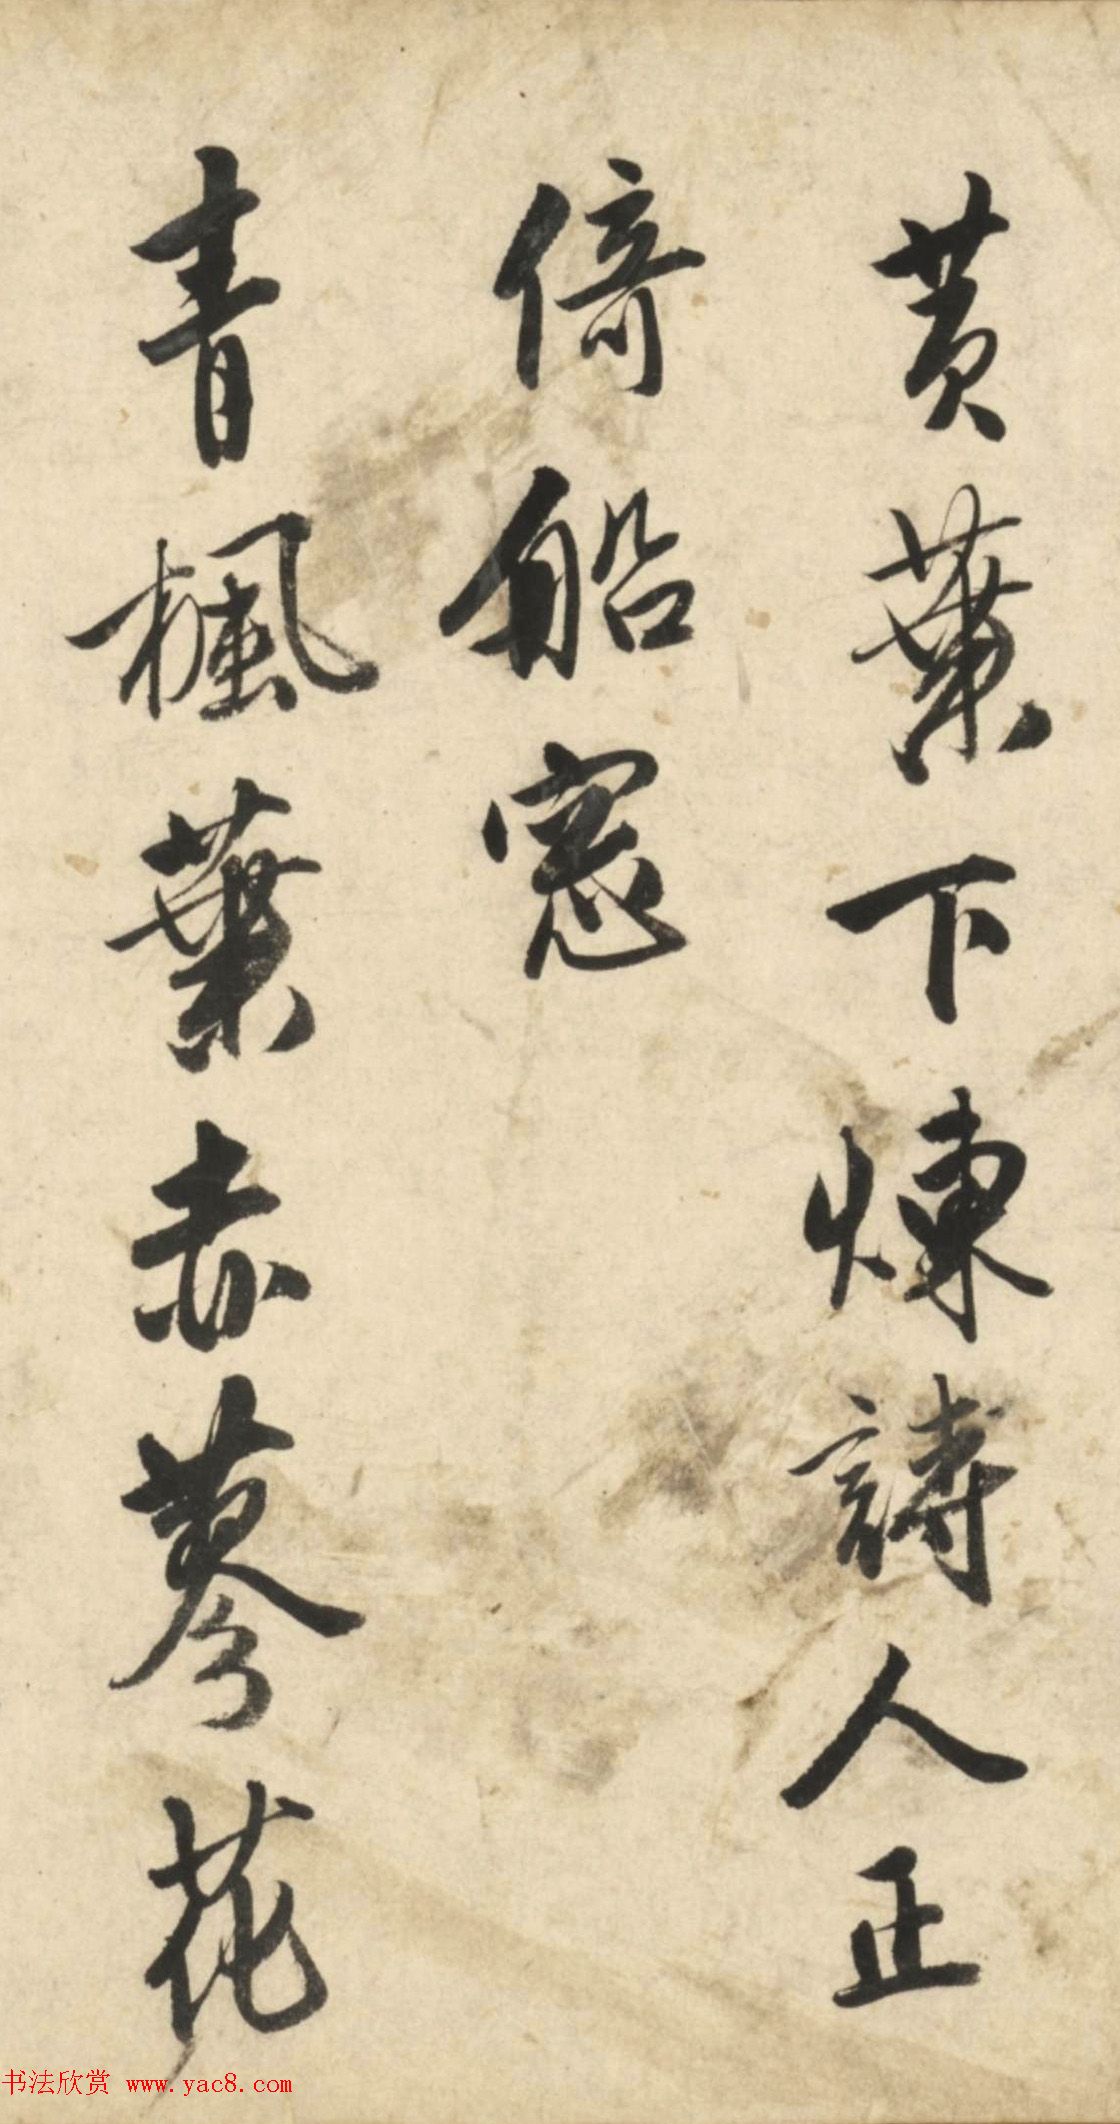 黃葉下煉詩人正
倚船窓
青楓葉赤蓼花
书法欣赏 www.yac8.com